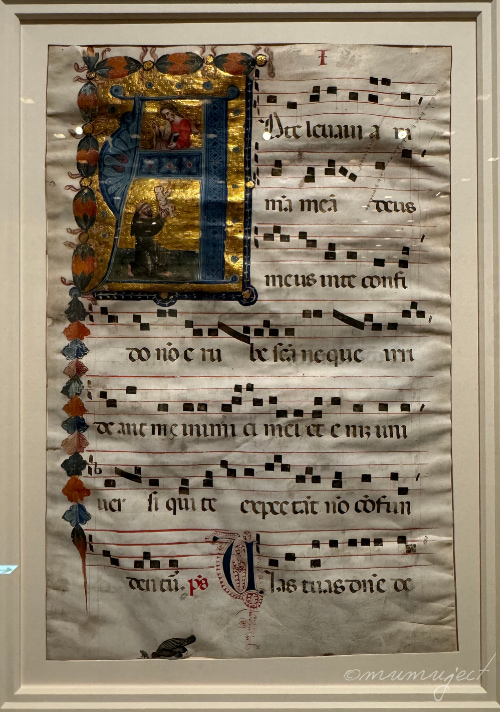 I
Ad te levavi a ni
mā meā deus
meus in te confi
do nō e ru be scā neque irri
de ant me inimi ci mei et e niz uni
ver si qui te expectāt nō cōfun
dentur. ps Vias tuas dn̄e de
©mumuject